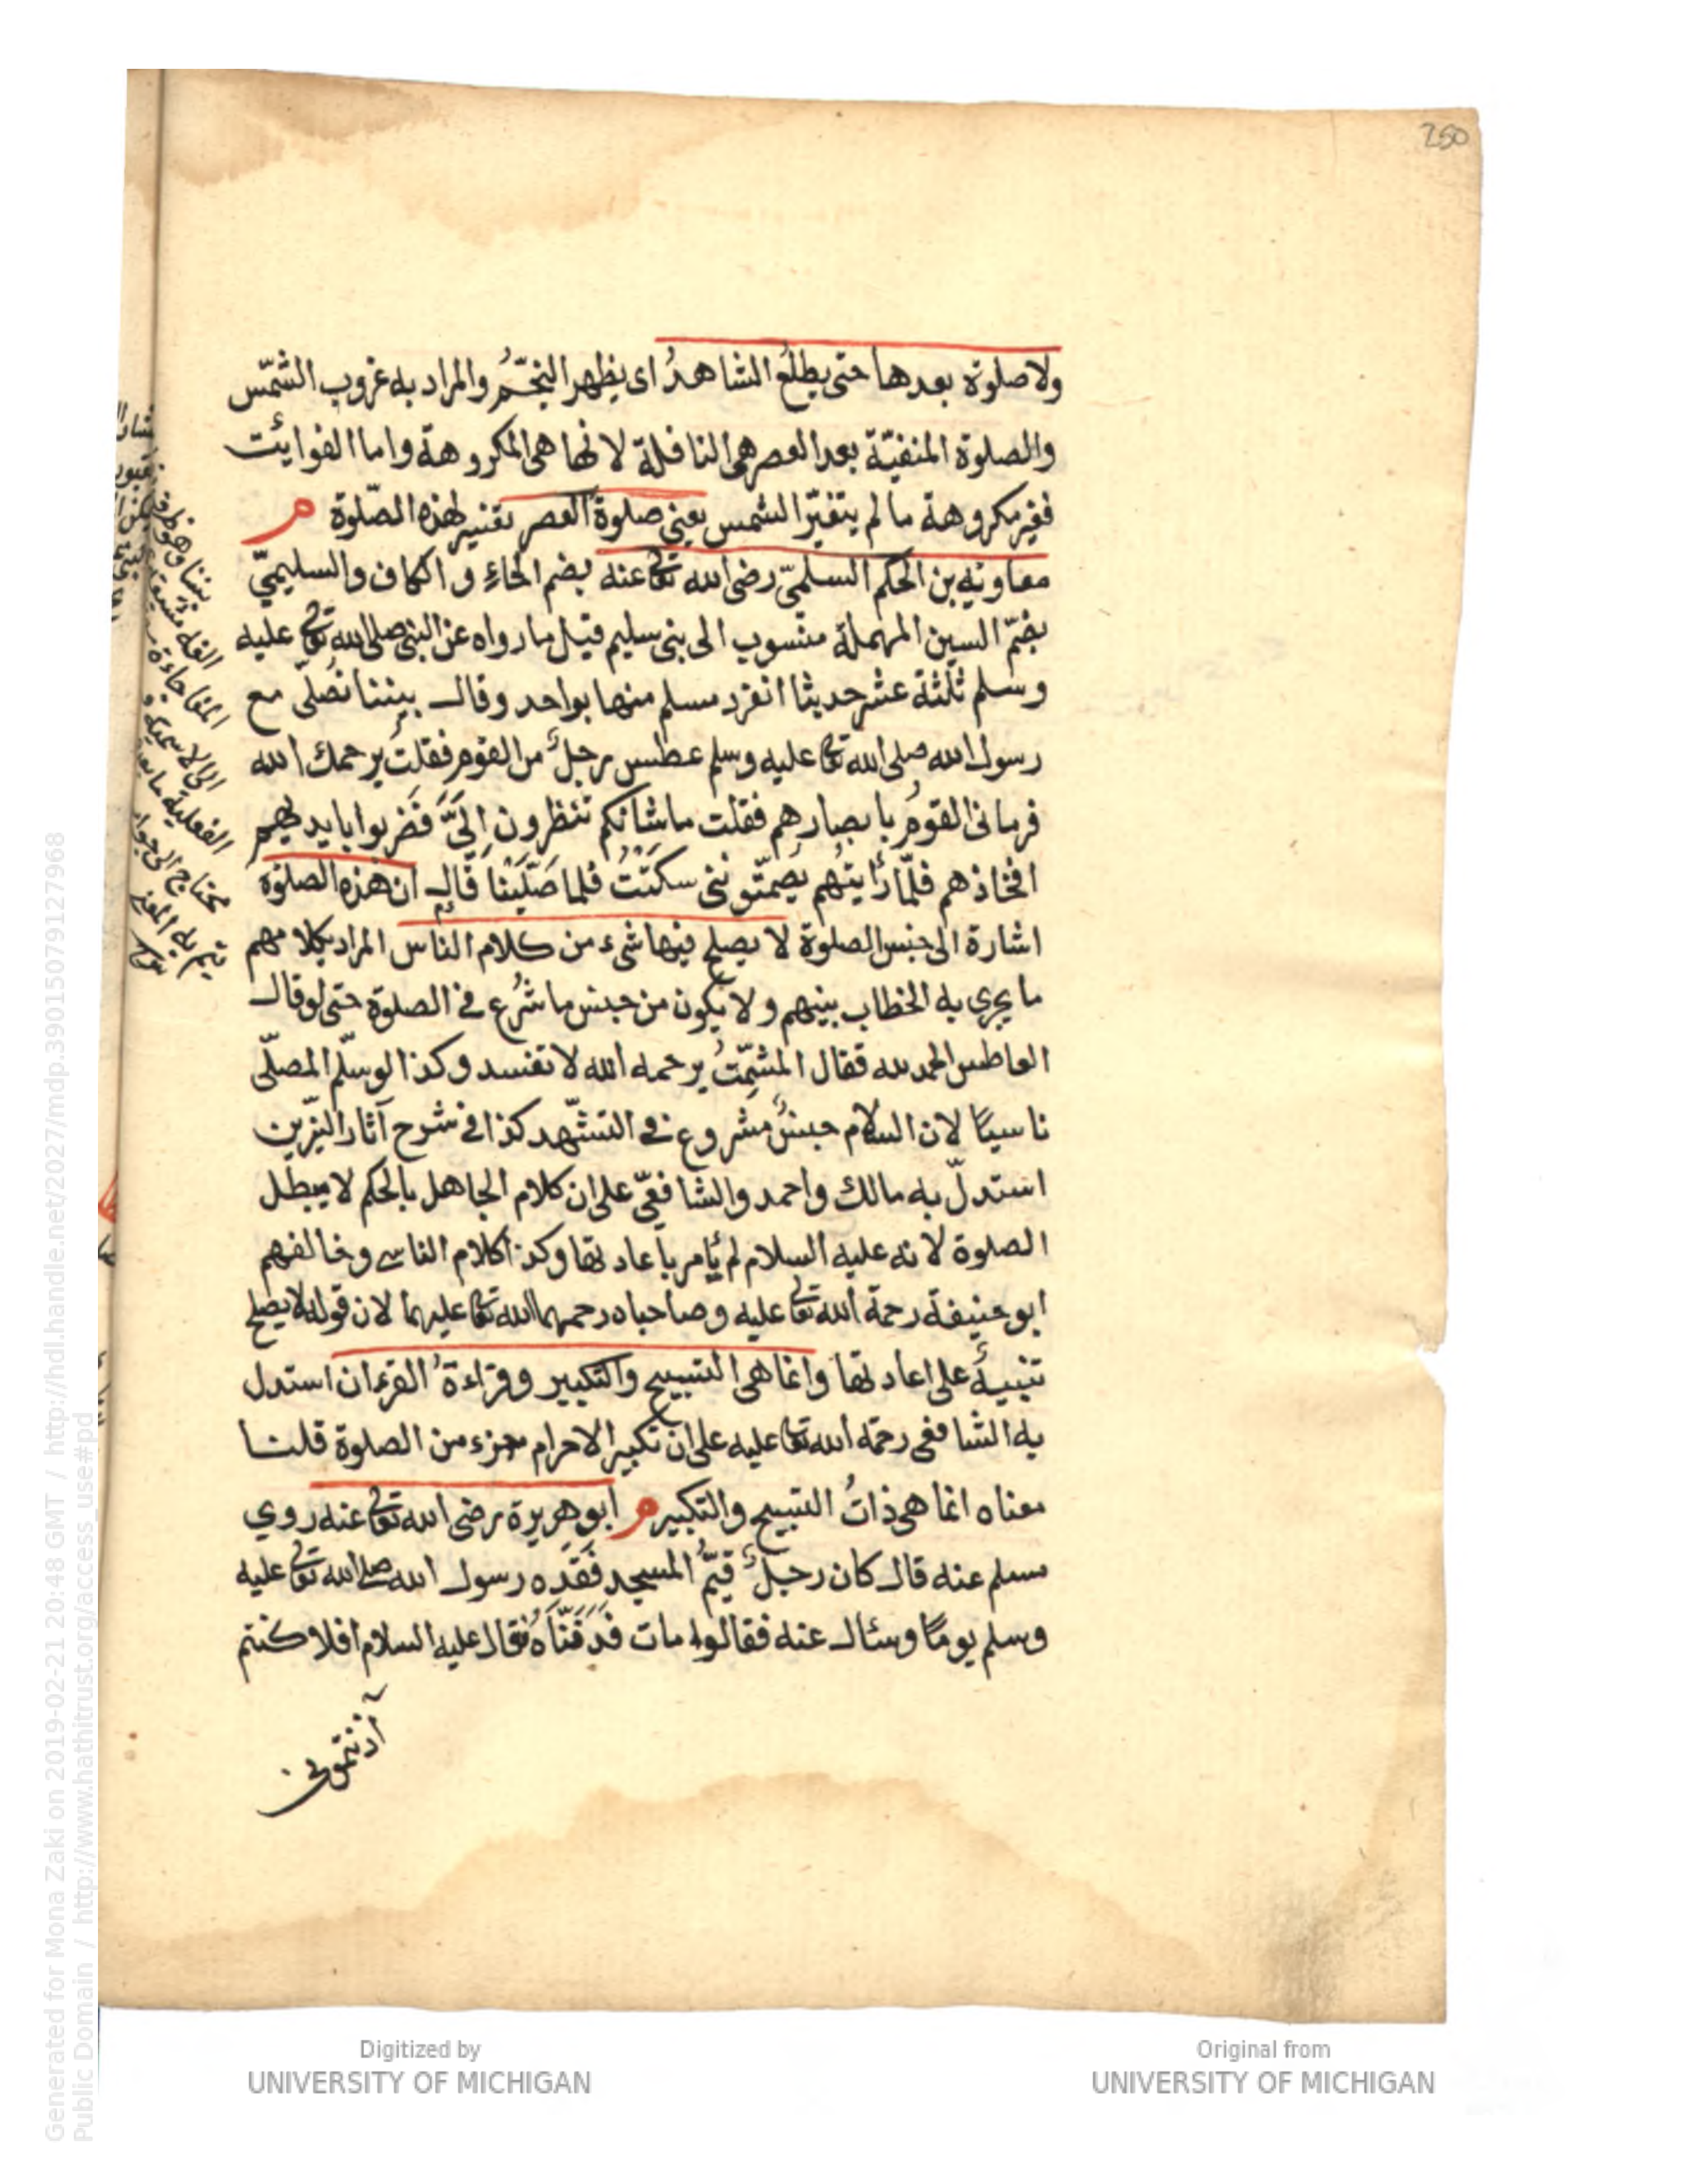 250
ولا صلوة بعدها حتى يطلعُ الشاهدُ اى يظهر النجمُ والمراد به غروب الشمس
والصلوة المنفيّة بعد العصر هى النافلة لانها هى المكروهة واما الفوايئت
فغير مكروهة ما لم يتغيّر الشمس يعنى صلوة العصر تفسير لهذه الصّلوة م
معاوية بن الحكم السلمىّ رضى الله تعا عنه بضم الحاءِ و الكاف والسليمىّ
بضمّ السين المهملة منسوب الى بنى سليم قيل ما رواه عن النبى صلى الله تعا عليه
وسلم ثلثة عشر حديثا انفرد مسلم منها بواحد وقال بيننا نُصلّى مع
رسول الله صلى الله تعا عليه وسلم عطس رجلٌ من القوم فقلتُ يرحمك الله
فرمانى القومُ بابصارهم فقلت ما شانكم تنظرون اِلَىَّ فَضربوا بايديهم
افخاذهم فلمّا رأيتُهم يُصمّتوننى سكتتُ فلما صَلّيْنا قَال ان هذه الصلوة
اشارة الى جنس الصلوة لا يصلح فيها شىء من كلام الناس المراد بكلامهم
ما يجرى به الخطاب بينهم ولا يكون من جنس ما شُرع فى الصلوة حتى لو قال
العاطس الحمد لله فقال المشمّتُ يرحمه الله لا تفسد وكذا لو سلّم المصلّى
ناسيًا لان السلام جنسٌ مشروع فى التشهّد كذا فى شرح آثار النيّرين
استدلّ به مالك واحمد والشافعىّ على ان كلام الجاهل بالحكم لا يبطل
الصلوة لانه عليه السلام لم يأمر باعادتها وكذا كلام الناسى وخالفهم
ابو حنيفة رحمة الله تعا عليه وصاحباه رحمهما الله تعا عليهما لان قوله لا يصلح
تنبيهٌ على اعادتها وانما هى التسبيح والتكبير وقراءةُ القرءان استدل
به الشافعى رحمة الله تعا عليه على ان تكبير الاحرام جزء من الصلوة قلنا
معناه انما هى ذاتُ التسبيح والتكبير م ابو هريرة رضى الله تعا عنه روي
مسلم عنه قال كان رجلٌ قيّمُ المسجد فَقَدِه رسول الله صلى الله تعا عليه
وسلم يومًا وسئال عنه فقالوا مات فَدَفَنّاه فقال عليه السلام افلا كنتم
آذنتمونى
الفعلية
يحتاج الى جواب
Digitized by
UNIVERSITY OF MICHIGAN
Original from
UNIVERSITY OF MICHIGAN
Generated for Mona Zaki on 2019-02-21 20:48 GMT / http://hdl.handle.net/2027/mdp.39015079127968
Public Domain / http://www.hathitrust.org/access_use#pd